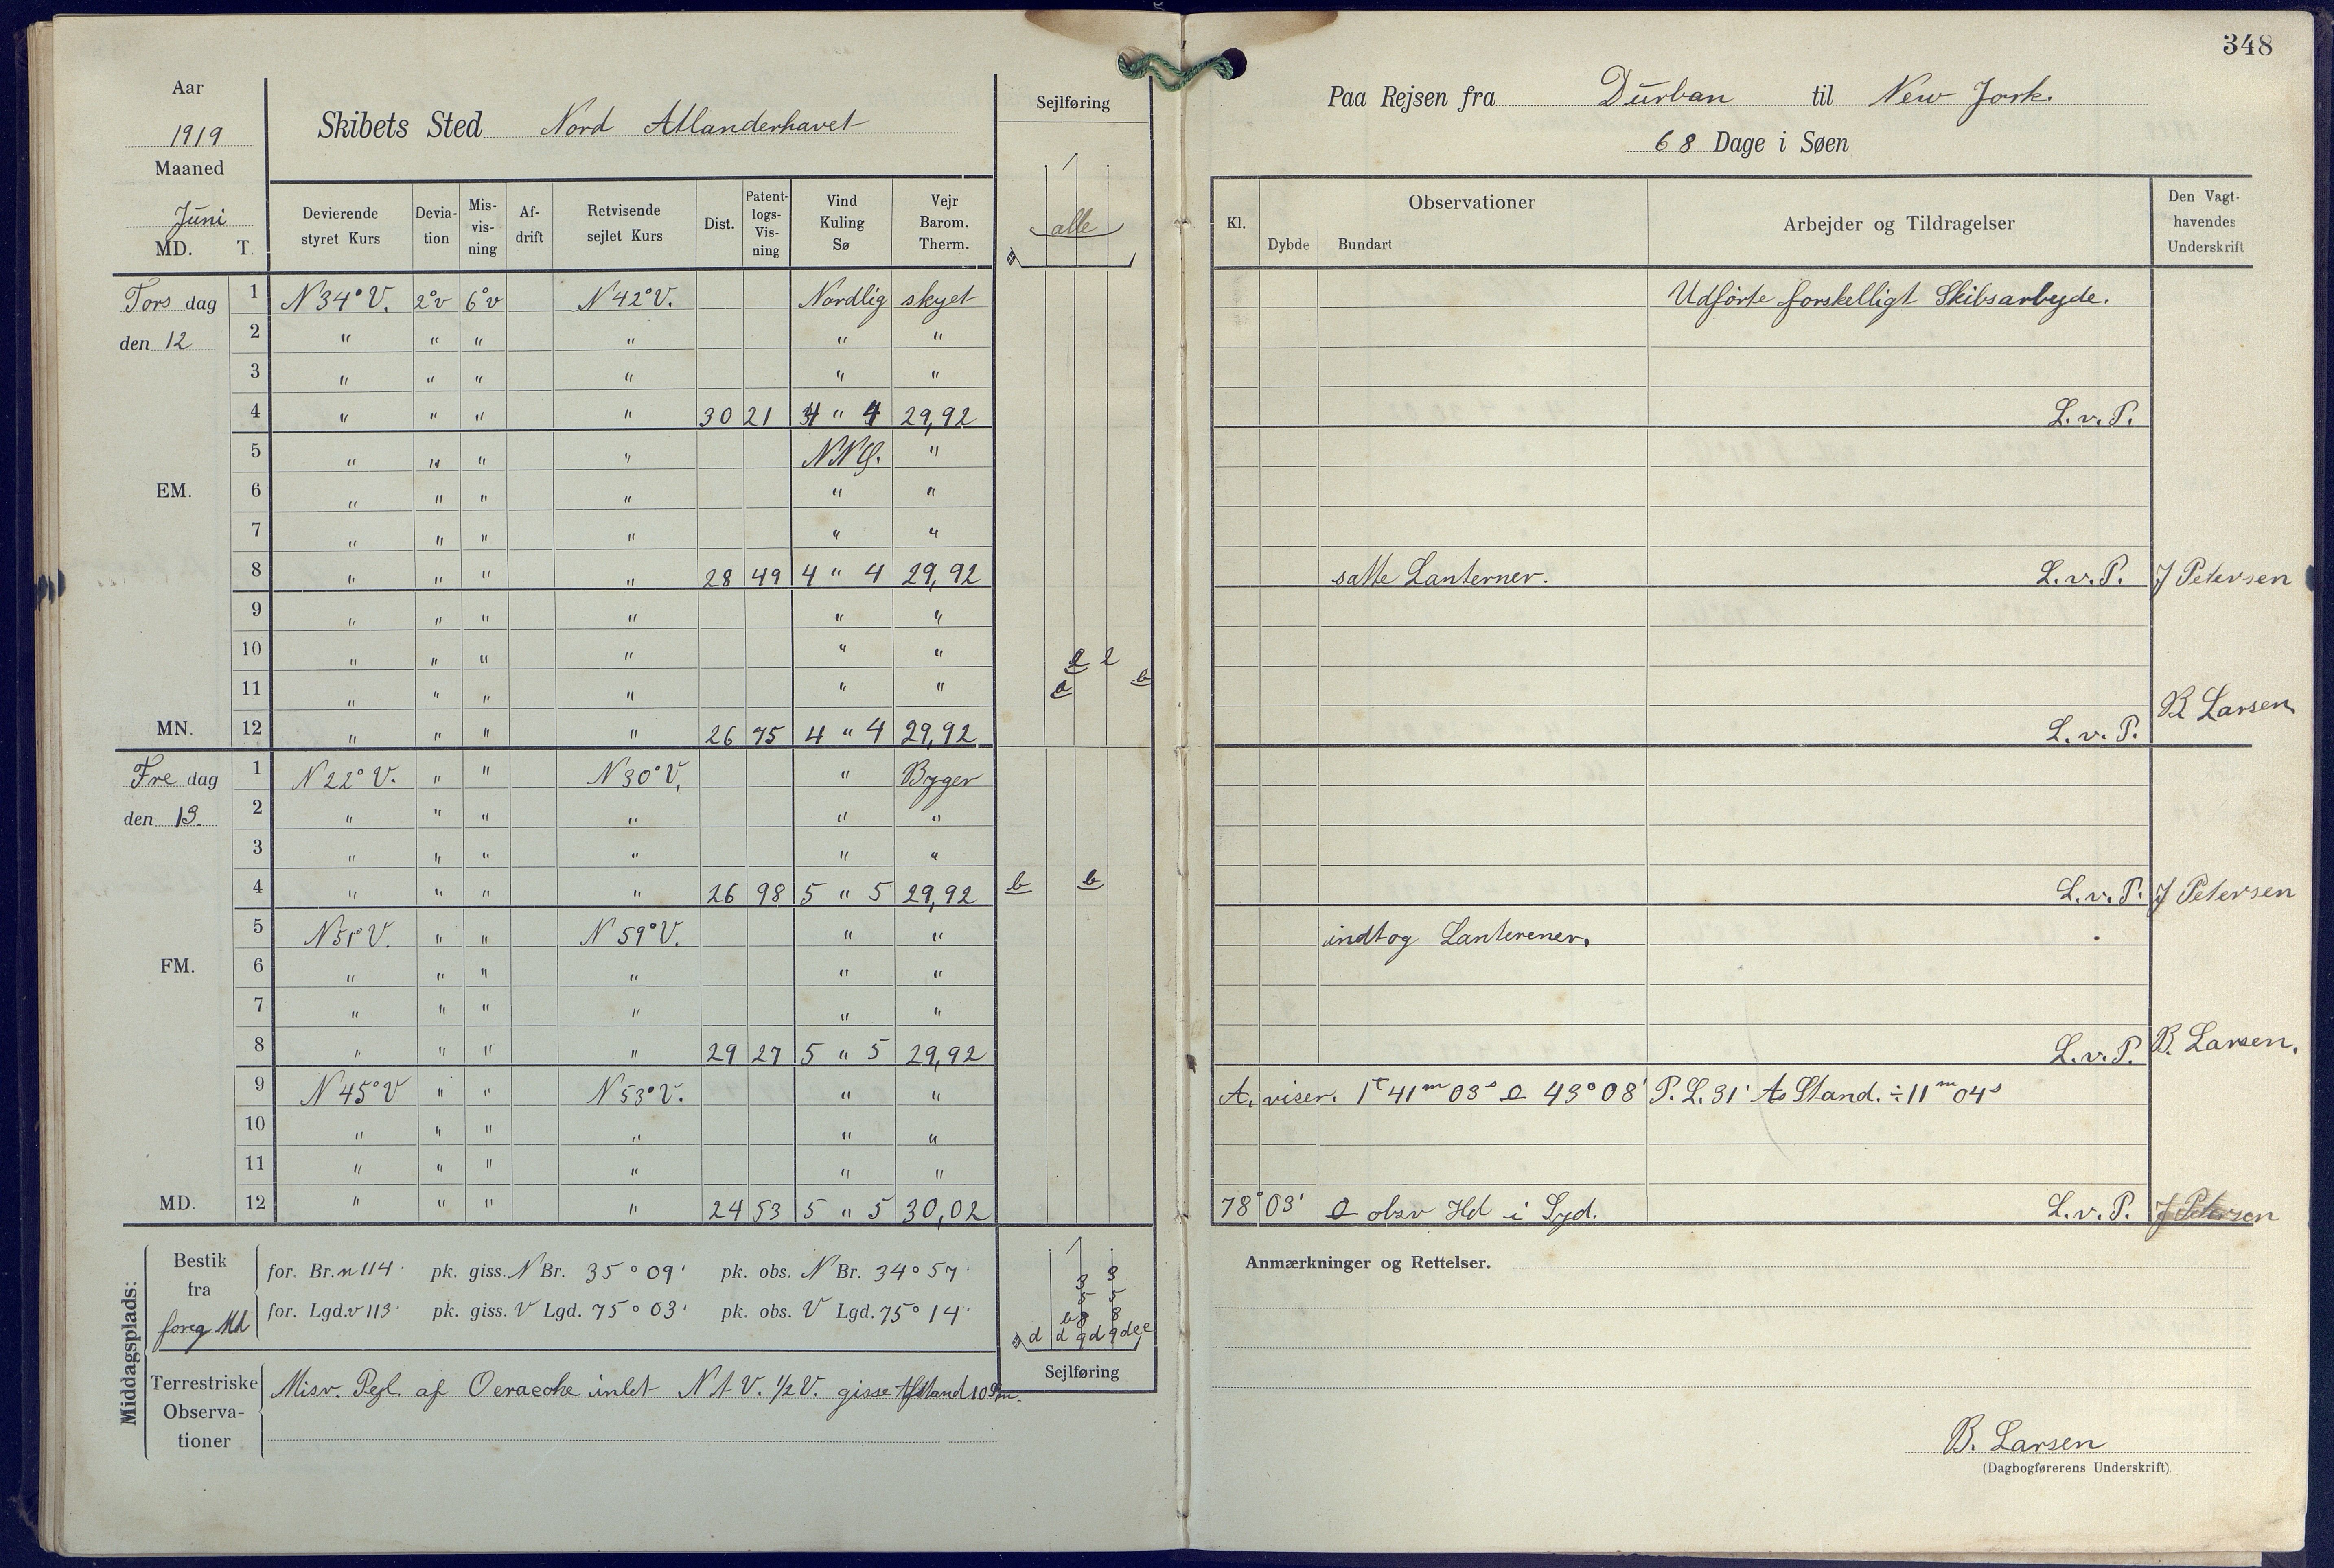 348
Aar
1919
Maaned
Juni
MD. T.
Skibets Sted Nord Atlanderhavet
Sejlføring
alle
Paa Rejsen fra Durban til New Jork.
68 Dage i Søen
Devierende styret Kurs | Devia-tion | Mis-vis-ning | Af-drift | Retvisende sejlet Kurs | Dist. | Patent-logs-Vis-ning | Vind Kuling Sø | Vejr Barom. Therm.
Kl. | Observationer | Dybde | Bundart | Arbejder og Tildragelser | Den Vagt-havendes Underskrift
Tors dag 1 N 34° V. 2°v 6°v N 42° V. Nordlig skyet Udførte forskelligt Skibsarbejde.
den 12 2 " " " " " "
3 " " " " " "
4 " " " " 30 21 4 " 4 29,92 L.v.P.
5 " " " " NNØ. "
EM. 6 " " " " " "
7 " " " " " "
8 " " " " 28 49 4 " 4 29,92 satte Lanterner. L.v.P. J Petersen
9 " " " " " "
10 " " " " " "
11 " " " " " "
B Larsen
MN. 12 " " " " 26 75 4 " 4 29,92 L.v.P.
Fre dag 1 N 22° V. " " N 30° V. " Byger
den 13. 2 " " " " " "
3 " " " " " "
4 " " " " 26 98 5 " 5 29,92 L.v.P. J Petersen
5 N 51° V. " " N 59° V. " " indtog Lanterener.
FM. 6 " " " " " "
7 " " " " " "
8 " " " " 29 27 5 " 5 29,92 L.v.P. B. Larsen.
9 N 45° V " " N 53° V. " " A. viser. 1t 41m 03s 43° 08' P.L. 31' As Stand. ÷ 11m 04s
10 " " " " " "
11 " " " " " "
MD. 12 " " " " 24 53 5 " 5 30,02 78° 03' obsv Hd i Syd. L.v.P. J Petersen
Middagsplads:
Bestik fra foreg Md
for. Br. n 114' pk. giss. N Br. 35° 09' pk. obs. N Br. 34° 57'
for. Lgd. v 113' pk. giss. V Lgd. 75° 03' pk. obs. V Lgd. 75° 14'
Sejlføring
Terrestriske Observa-tioner
Misv. Pejl. af Ocracoke inlet N t V. ½ V. gisse Afstand 10
Anmærkninger og Rettelser.
B. Larsen
(Dagbogførerens Underskrift).